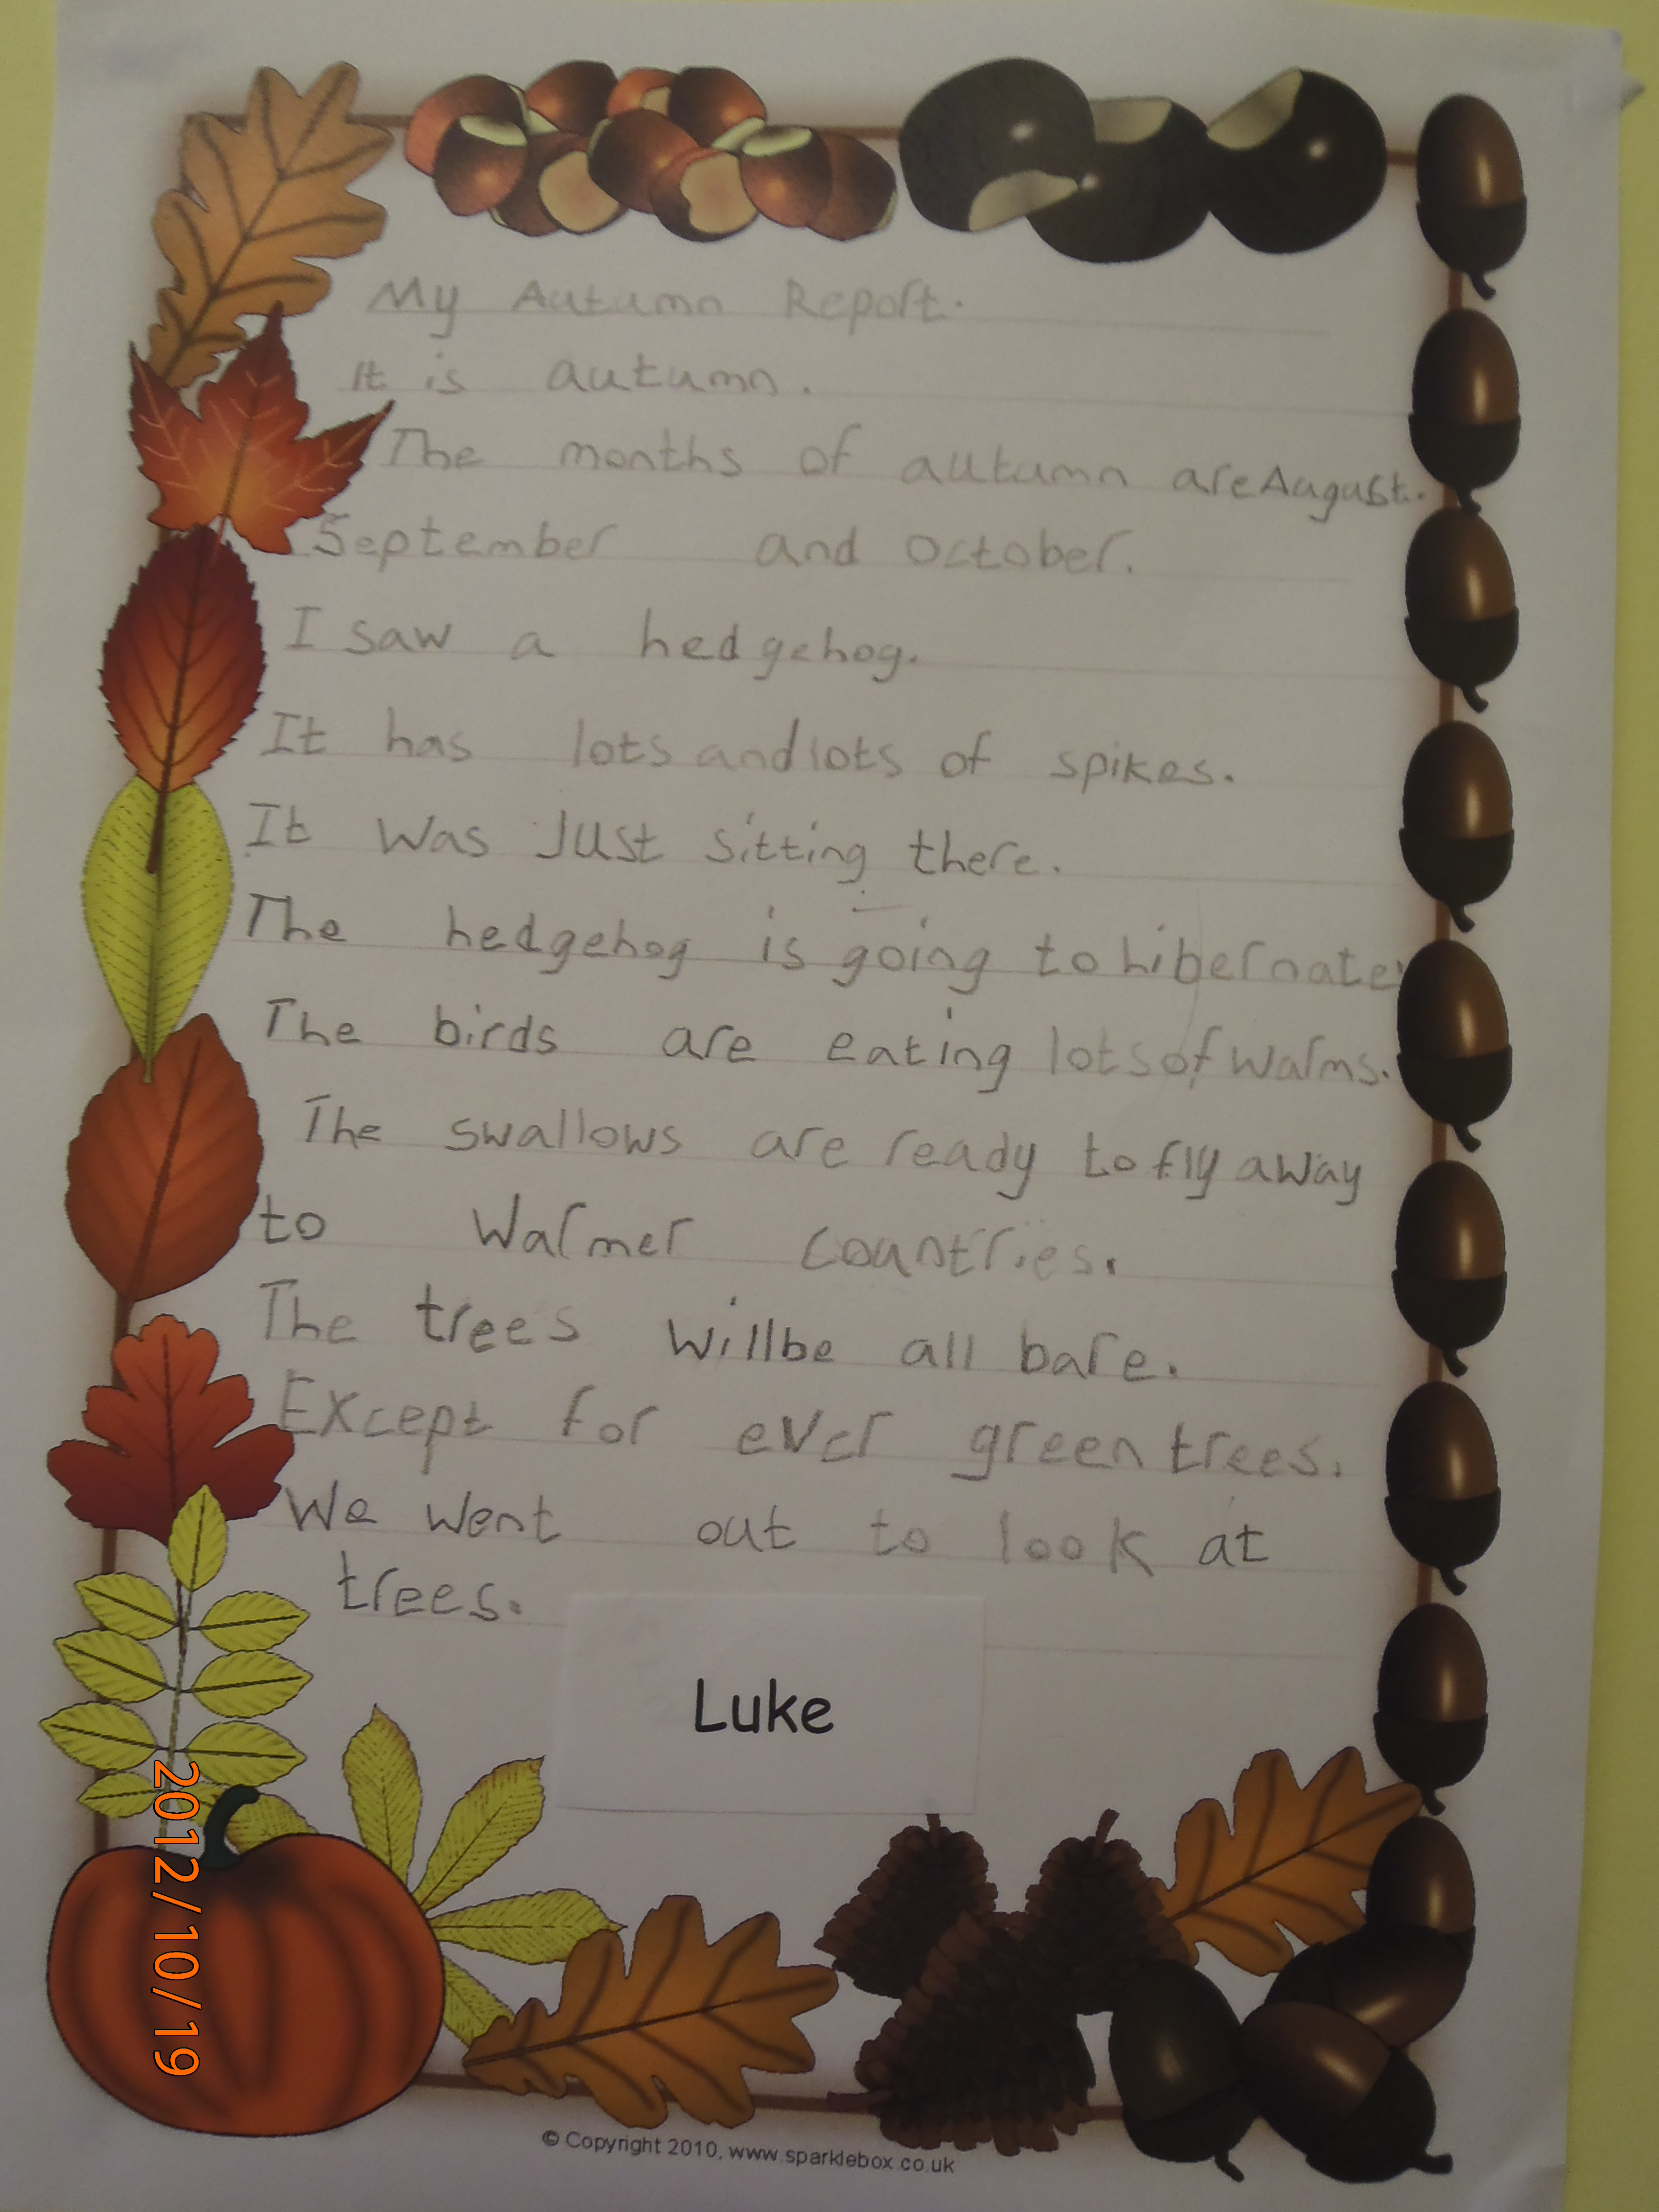 My Autumn Report.
It is autumn.
The months of autumn are August.
September and October.
I saw a hedgehog.
It has lots and lots of spikes.
It was Just sitting there.
The hedgehog is going to hibernate.
The birds are eating lots of warms.
The swallows are ready to fly away
to warmer countries.
The trees will be all bare.
Except for ever green trees.
We went out to look at
trees.
Luke
2012/10/19
© Copyright 2010, www.sparklebox.co.uk